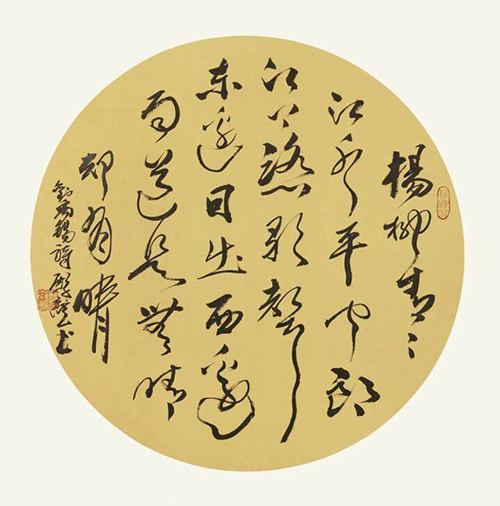 楊柳青〻
江水平闻郎
江上踏歌聲
东邊日出西邊
雨道是無晴
却有晴
劉禹錫詩